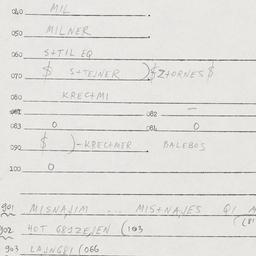 040 MIL
050 MILNER
060 S+TIL EQ
070 $ S+TEJNER )$Z+ORNES $
080 KRECTMI
081 082 —
083 0 084 0
090 $ )-KRECTMER BALEBOS
100 0
901 MISNAJIM ... MIS+NAJES QI
902 HOT GEJZEJEN (103
903 LAJNGBI (066